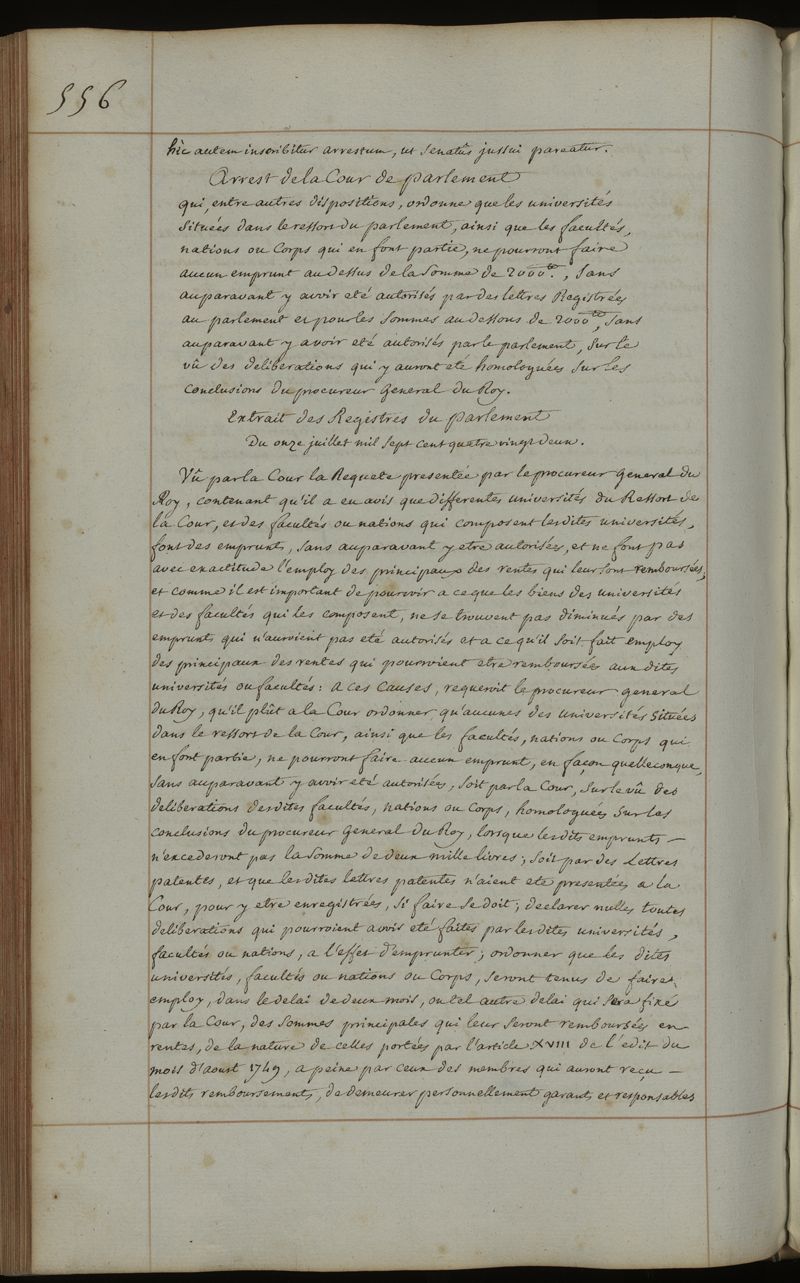 556
hîc autem inscribitur arrestum, ut Senatûs jussui pareatur.
Arrest de la Cour de parlement
qui, entre autres dispositions, ordonne que les universités
situées dans le ressort du parlement, ainsi que les facultés,
nations ou Corps qui en font partie, ne pourront faire
aucun emprunt au dessus de la somme de 2000.tt, sans
auparavant y avoir eté autorisés par des lettres Registrées
au parlement et pour les sommes au dessous de 2000tt, sans
auparavant y avoir eté autorisés par le parlement, sur le
vû des deliberations qui y auront eté homologuées sur les
Conclusions du procureur General du Roy.
Extrait des Registres du parlement
Du onze juillet mil sept cent quatre vingt deux.
Vû par la Cour la Requete presentée par le procureur General du
Roy, contenant qu'il a eu avis que differentes universités du Ressort de
la Cour, et des facultés ou nations qui composent lesdites universités,
font des emprunts, sans auparavant y etre autorisées, et ne font pas
avec exactitude l'employ des principaux des rentes qui leur sont remboursées,
et comme il est important de pourvoir a ce que les biens des universités
et des facultés qui les composent, ne se trouvent pas diminués par des
emprunts qui n'auroient pas eté autorisés et a ce qu'il soit fait employ
des principaux des rentes qui pourroient etre remboursées aux dites
universités ou facultés: a ces causes, requeroit le procureur general
du Roy, qu'il plût a la Cour ordonner qu'aucunes des universités situées
dans le ressort de la Cour, ainsi que les facultés, nations ou Corps qui
en font partie, ne pourront faire aucun emprunt, en façon quelleconque,
sans auparavant y avoir eté autorisées, soit par la Cour, sur le vû des
deliberations desdites facultés, nations ou Corps, homologuées sur les
conclusions du procureur General du Roy, lorsque lesdits emprunts —
n'excederont pas la somme de deux mille livres; soit par des Lettres
patentes, et que lesdites lettres patentes n'aient eté presentées a la
Cour, pour y etre enregistrées, si faire se doit; declarer nulles toutes
deliberations qui pourroient avoir eté faites par lesdites universités,
facultés ou nations, a l'effet d'emprunter; ordonner que les dites
universités, facultés ou nations ou Corps, seront tenus de faire
employ, dans le delai de deux mois, ou tel autre delai qui sera fixé
par la Cour, des sommes principales qui leur seront remboursées en
rentes, de la nature de celles portées par l'article XVIII de l'edit du
mois d'aoust 1749, a peine par ceux des membres qui auront reçu —
lesdits remboursements, de demeurer personnellement garants et responsables